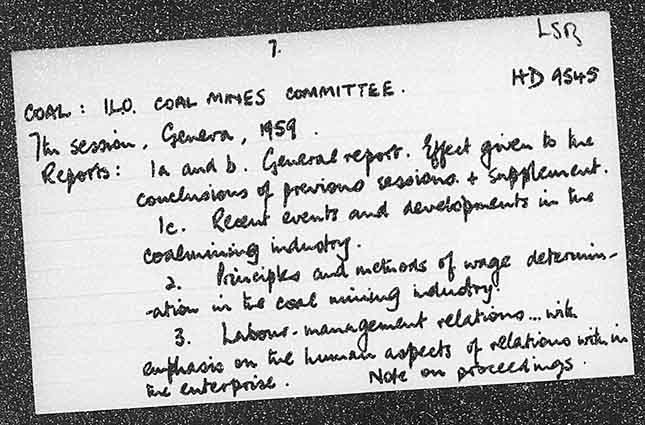 7.
LSB
COAL: I.L.O. COAL MINES COMMITTEE.
HD 9545
7th session, Geneva, 1959.
Reports: 1a and b. General report. Effect given to the
conclusions of previous sessions. + Supplement.
1c. Recent events and developments in the
coalmining industry.
2. Principles and methods of wage determin-
-ation in the coal mining industry.
3. Labour-management relations... with
emphasis on the human aspects of relations within
the enterprise. Note on proceedings.